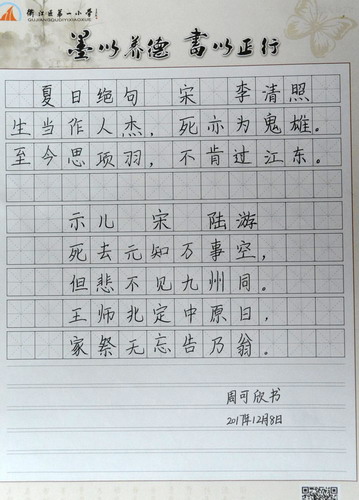 衢江区第一小学
QUJIANGQUDIYIXIAOXUE
墨以养德 書以正行
夏日绝句 宋 李清照
生当作人杰，死亦为鬼雄。
至今思项羽，不肯过江东。
示儿 宋 陆游
死去元知万事空，
但悲不见九州同。
王师北定中原日，
家祭无忘告乃翁。
周可欣书
2017年12月8日